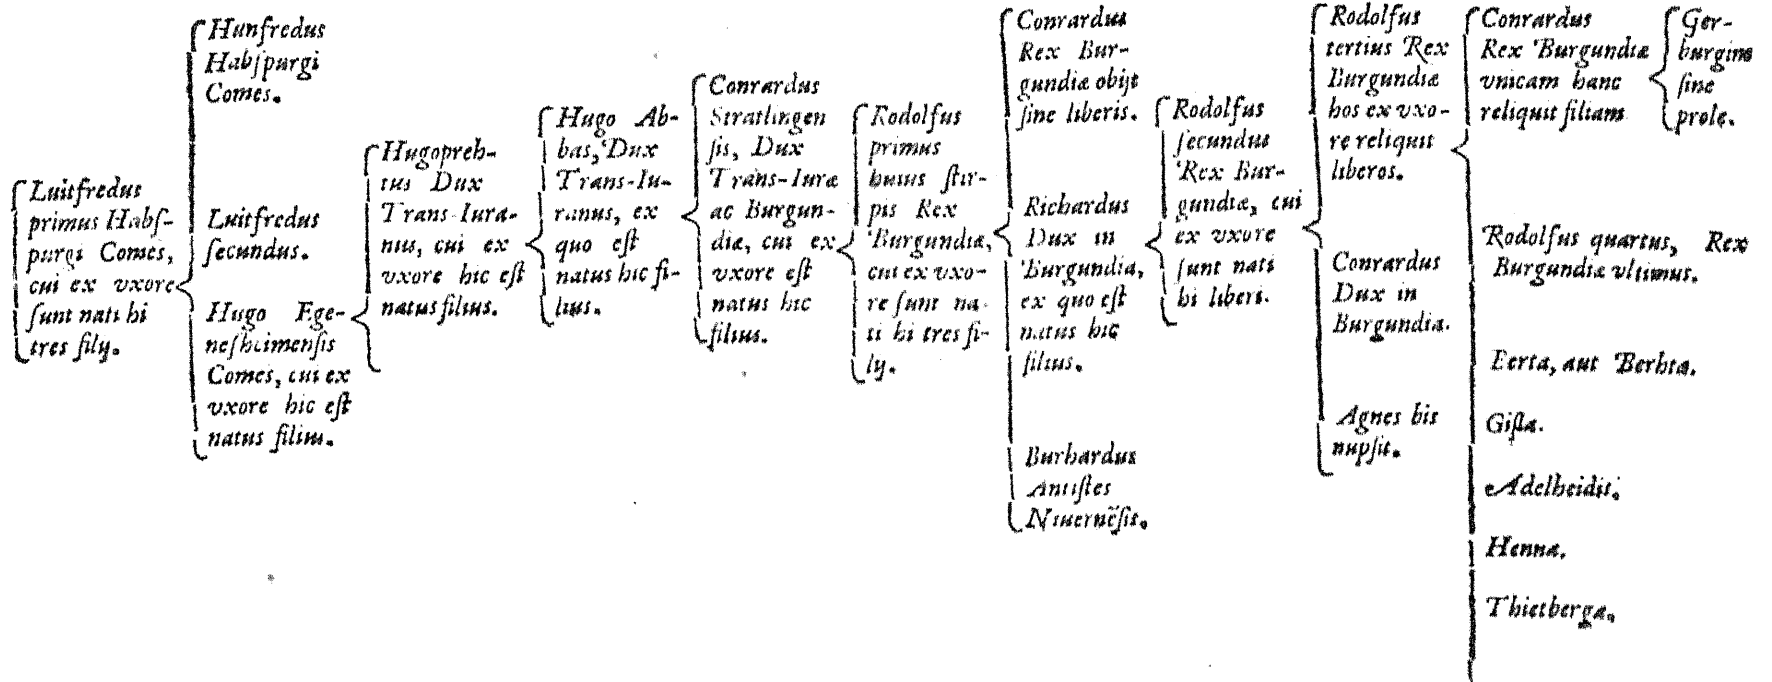 Luitfredus
primus Habſ-
purgi Comes,
cui ex vxore
ſunt nati hi
tres filij.
Hunfredus
Habſpurgi
Comes.
Luitfredus
ſecundus.
Hugo Ege-
neſheimenſis
Comes, cui ex
vxore hic eſt
natus filius.
Hugopreh-
tus Dux
Trans-Iura-
nus, cui ex
vxore hic eſt
natus filius.
Hugo Ab-
bas, Dux
Trans-Iu-
ranus, ex
quo eſt
natus hic fi-
lius.
Conrardus
Stratlingen
ſis, Dux
Trans-Iuræ
ac Burgun-
diæ, cui ex
vxore eſt
natus hic
filius.
Rodolfus
primus
huius ſtir-
pis Rex
Burgundiæ,
cui ex vxo-
re ſunt na-
ti hi tres fi-
lij.
Conrardus
Rex Bur-
gundiæ obijt
ſine liberis.
Richardus
Dux in
Burgundia,
ex quo eſt
natus hic
filius.
Burhardus
Antiſtes
Niuernẽſis.
Rodolfus
ſecundus
Rex Bur-
gundiæ, cui
ex vxore
ſunt nati
hi liberi.
Rodolfus
tertius Rex
Burgundiæ
hos ex vxo-
re reliquit
liberos.
Conrardus
Dux in
Burgundia.
Agnes bis
nupſit.
Conrardus
Rex Burgundiæ
vnicam hanc
reliquit filiam
Rodolfus quartus, Rex
Burgundiæ vltimus.
Berta, aut Berhta.
Giſla.
Adelheidis.
Henna.
Thietberga.
Ger-
burgina
ſine
prole.